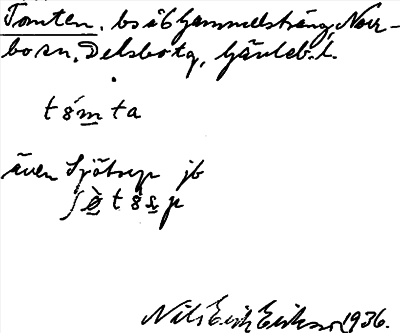 Tomten. bs å 6 Gammelsträng, Norr-
bo sn, Delsbo tg, Gävleb. l.
tómta
även Sjötorp jb
Nils Erik Eriksson 1936.